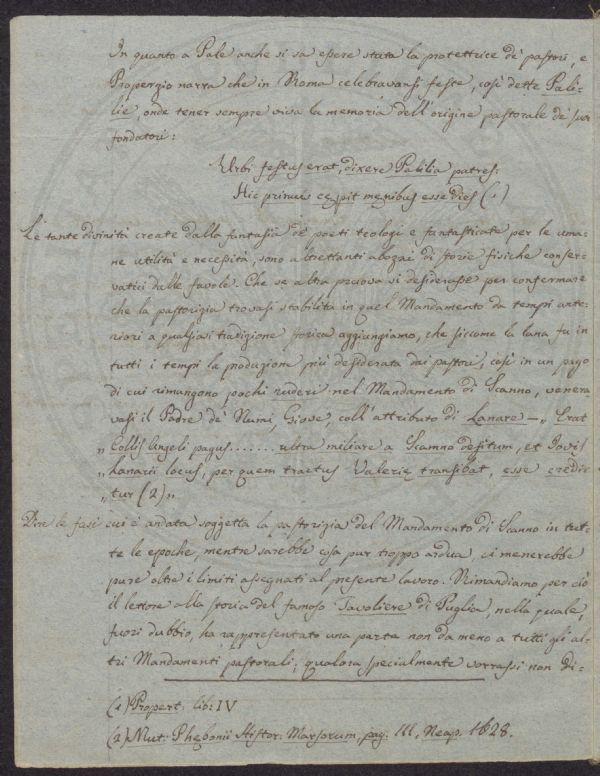 In quanto a Pale anche si sa essere stata la protettrice de' pastori, e
Properzio narra che in Roma celebravansi feste, così dette Pali-
lie, onde tener sempre viva la memoria dell'origine pastorale de' suoi
fondatori:
Urbi festus erat, dixere Palilia patres:
Hic primus cepit menibus esse dies (1)
Le tante divinità create dalla fantasia de' poeti teologi e fantasticate per le uma-
ne utilità e necessità, sono altrettanti di storie fisiche conser-
vatici dalle favole. Che se altra pruova si desiderasse per confermare
che la pastorizia trovasi stabilita in quel Mandamento da tempi ante-
riori a qualsiasi tradizione storica aggiungiamo, che siccome la lana fu in
tutti i tempi la produzione più desiderata dai pastori, così in un pago
di cui rimangono pochi ruderi nel Mandamento di Scanno, venera
vasi il Padre de' Numi, Giove, coll'attributo di Lanare — „ Erat
„ Collis Angeli pagus....... ultra miliare a Scamno desitum, et Jovis
„ Lanarii locus, per quem tractus Valerie transibat, esse credi
„ tur (2)„
Dire le fasi cui è andata soggetta la pastorizia del Mandamento di Scanno in tut-
te le epoche, mentre sarebbe cosa pur troppo ardua, ci menerebbe
pure oltre i limiti assegnati al presente lavoro. Rimandiamo per ciò
il lettore alla storia del famoso Tavoliere di Puglia, nella quale,
fuori dubbio, ha rappresentato una parte non da meno a tutti gli al-
tri Mandamenti pastorali; qualora specialmente vorrassi non di-
(1) Propert: lib: IV
(2) Mut: Phebonii Histor: Marsorum, pag: 111, Neap. 1628.